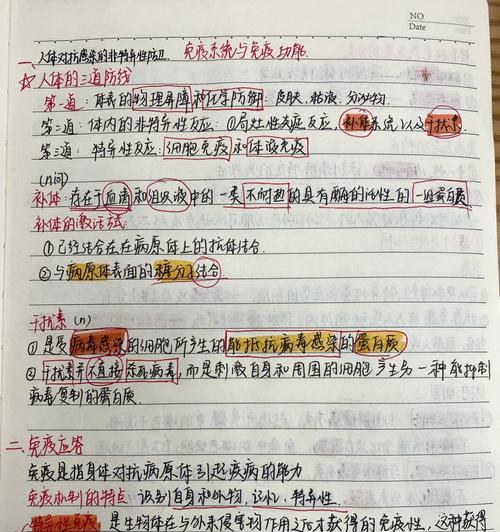 NO
Date
一、人体对抗感染的非特异性防卫. 免疫系统与免疫功能.
☆人体的三道防线
第一道：体表的物理屏障和化学防御：皮肤，粘液，分泌物.
第二道：体内的非特异性反应：①局灶性炎症反应，补体系统以及干扰素.
第三道：特异性反应：细胞免疫和体液免疫
补体：存在于血清和组织液中的一类不耐热的具有酶的活性的一组蛋白质
补体的激活方式：
①已经结合在在病原体上的抗体结合.
②与病原体表面的糖分子结合.
干扰素 (n)
①是受病毒感染的细胞所产生的能抵抗病毒感染的蛋白质
②干扰素并不直接杀死病毒，而是刺激自身和周围的细胞产生另一种能抑制
病毒复制的蛋白质.
二、免疫应答
免疫是指身体对抗病原体引起疾病的能力
免疫机制的特点：识别自身和外物，记忆，特异性.
特异性免疫：是生物体在与外来侵害物作用之后才获得的免疫性，这种获得